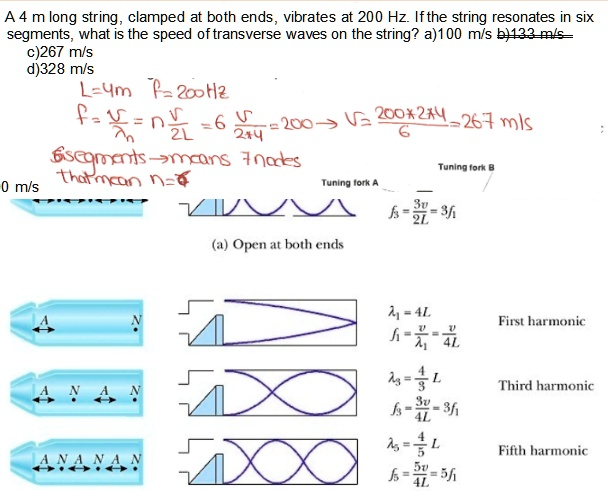 A 4 m long string, clamped at both ends, vibrates at 200 Hz. If the string resonates in six
segments, what is the speed of transverse waves on the string? a)100 m/s b)133 m/s
c)267 m/s
d)328 m/s
L=4m f=200Hz
f = v/λn = n v/2L = 6 v/2*4 = 200 → v = 200*2*4/6 = 267 m/s
6 segments → means 7 nodes
that mean n=6
0 m/s
Tuning fork A
Tuning fork B
f3 = 3v/2L = 3f1
(a) Open at both ends
A N
λ1 = 4L
f1 = v/λ1 = v/4L
First harmonic
A N A N
λ3 = 4/3 L
f3 = 3v/4L = 3f1
Third harmonic
A N A N A N
λ5 = 4/5 L
f5 = 5v/4L = 5f1
Fifth harmonic